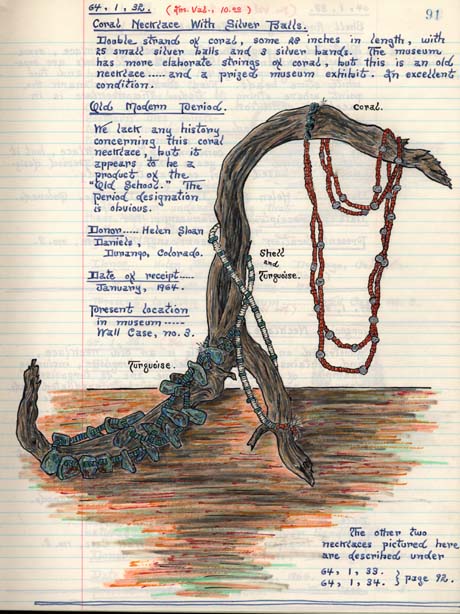 64, 1, 32. (Ins. Val., 10.00)
91
Coral Necklace With Silver Balls.
Double strand of coral, some 28 inches in length, with
25 small silver balls and 3 silver bands. The museum
has more elaborate strings of coral, but this is an old
necklace.....and a prized museum exhibit. In excellent
condition.
Old Modern Period.
We lack any history
concerning this coral
necklace, but it
appears to be a
product of the
"Old School." The
period designation
is obvious.
Donor..... Helen Sloan
Daniels,
Durango, Colorado.
Date of receipt....
January, 1964.
Present location
in museum.....
Wall Case, no. 3.
Coral.
Shell
and
Turquoise.
Turquoise.
The other two
necklaces pictured here
are described under
64, 1, 33. }
64, 1, 34. } page 92.